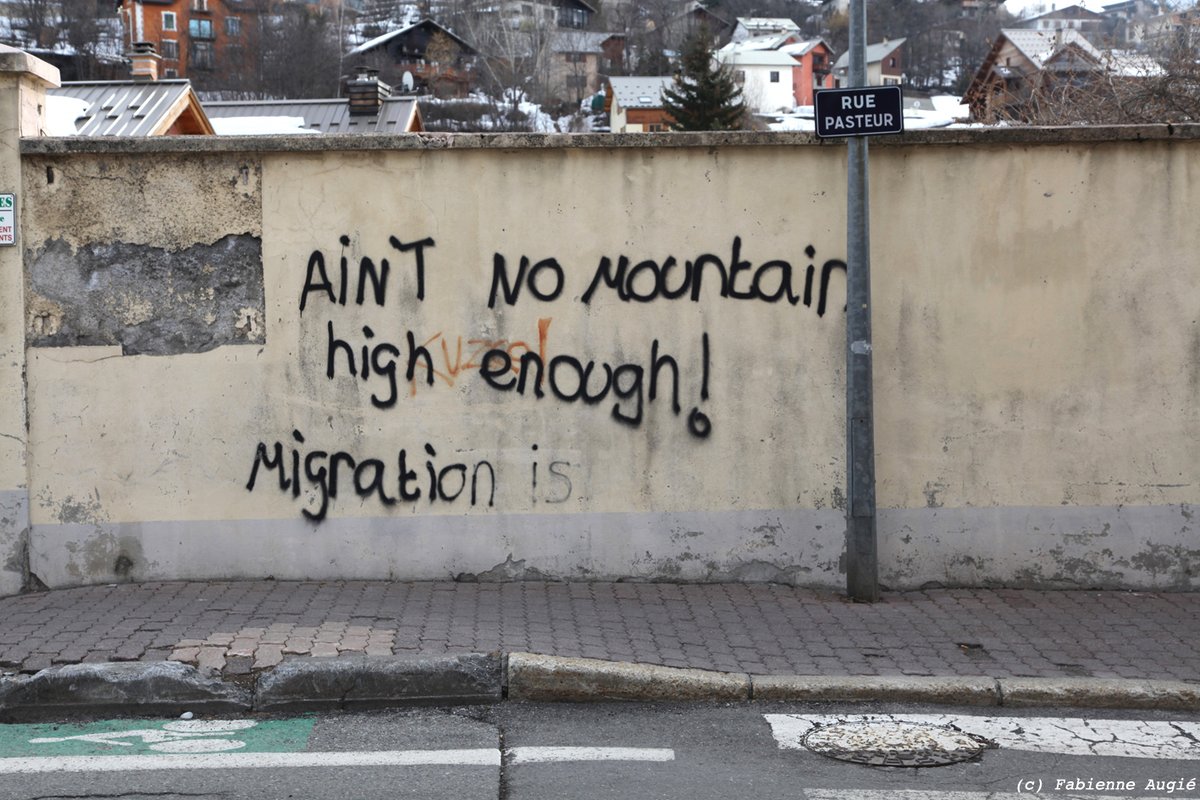 RUE
PASTEUR
ES
AIN'T NO MOUNTAIN
high enough!
Migration is
(c) Fabienne Augié